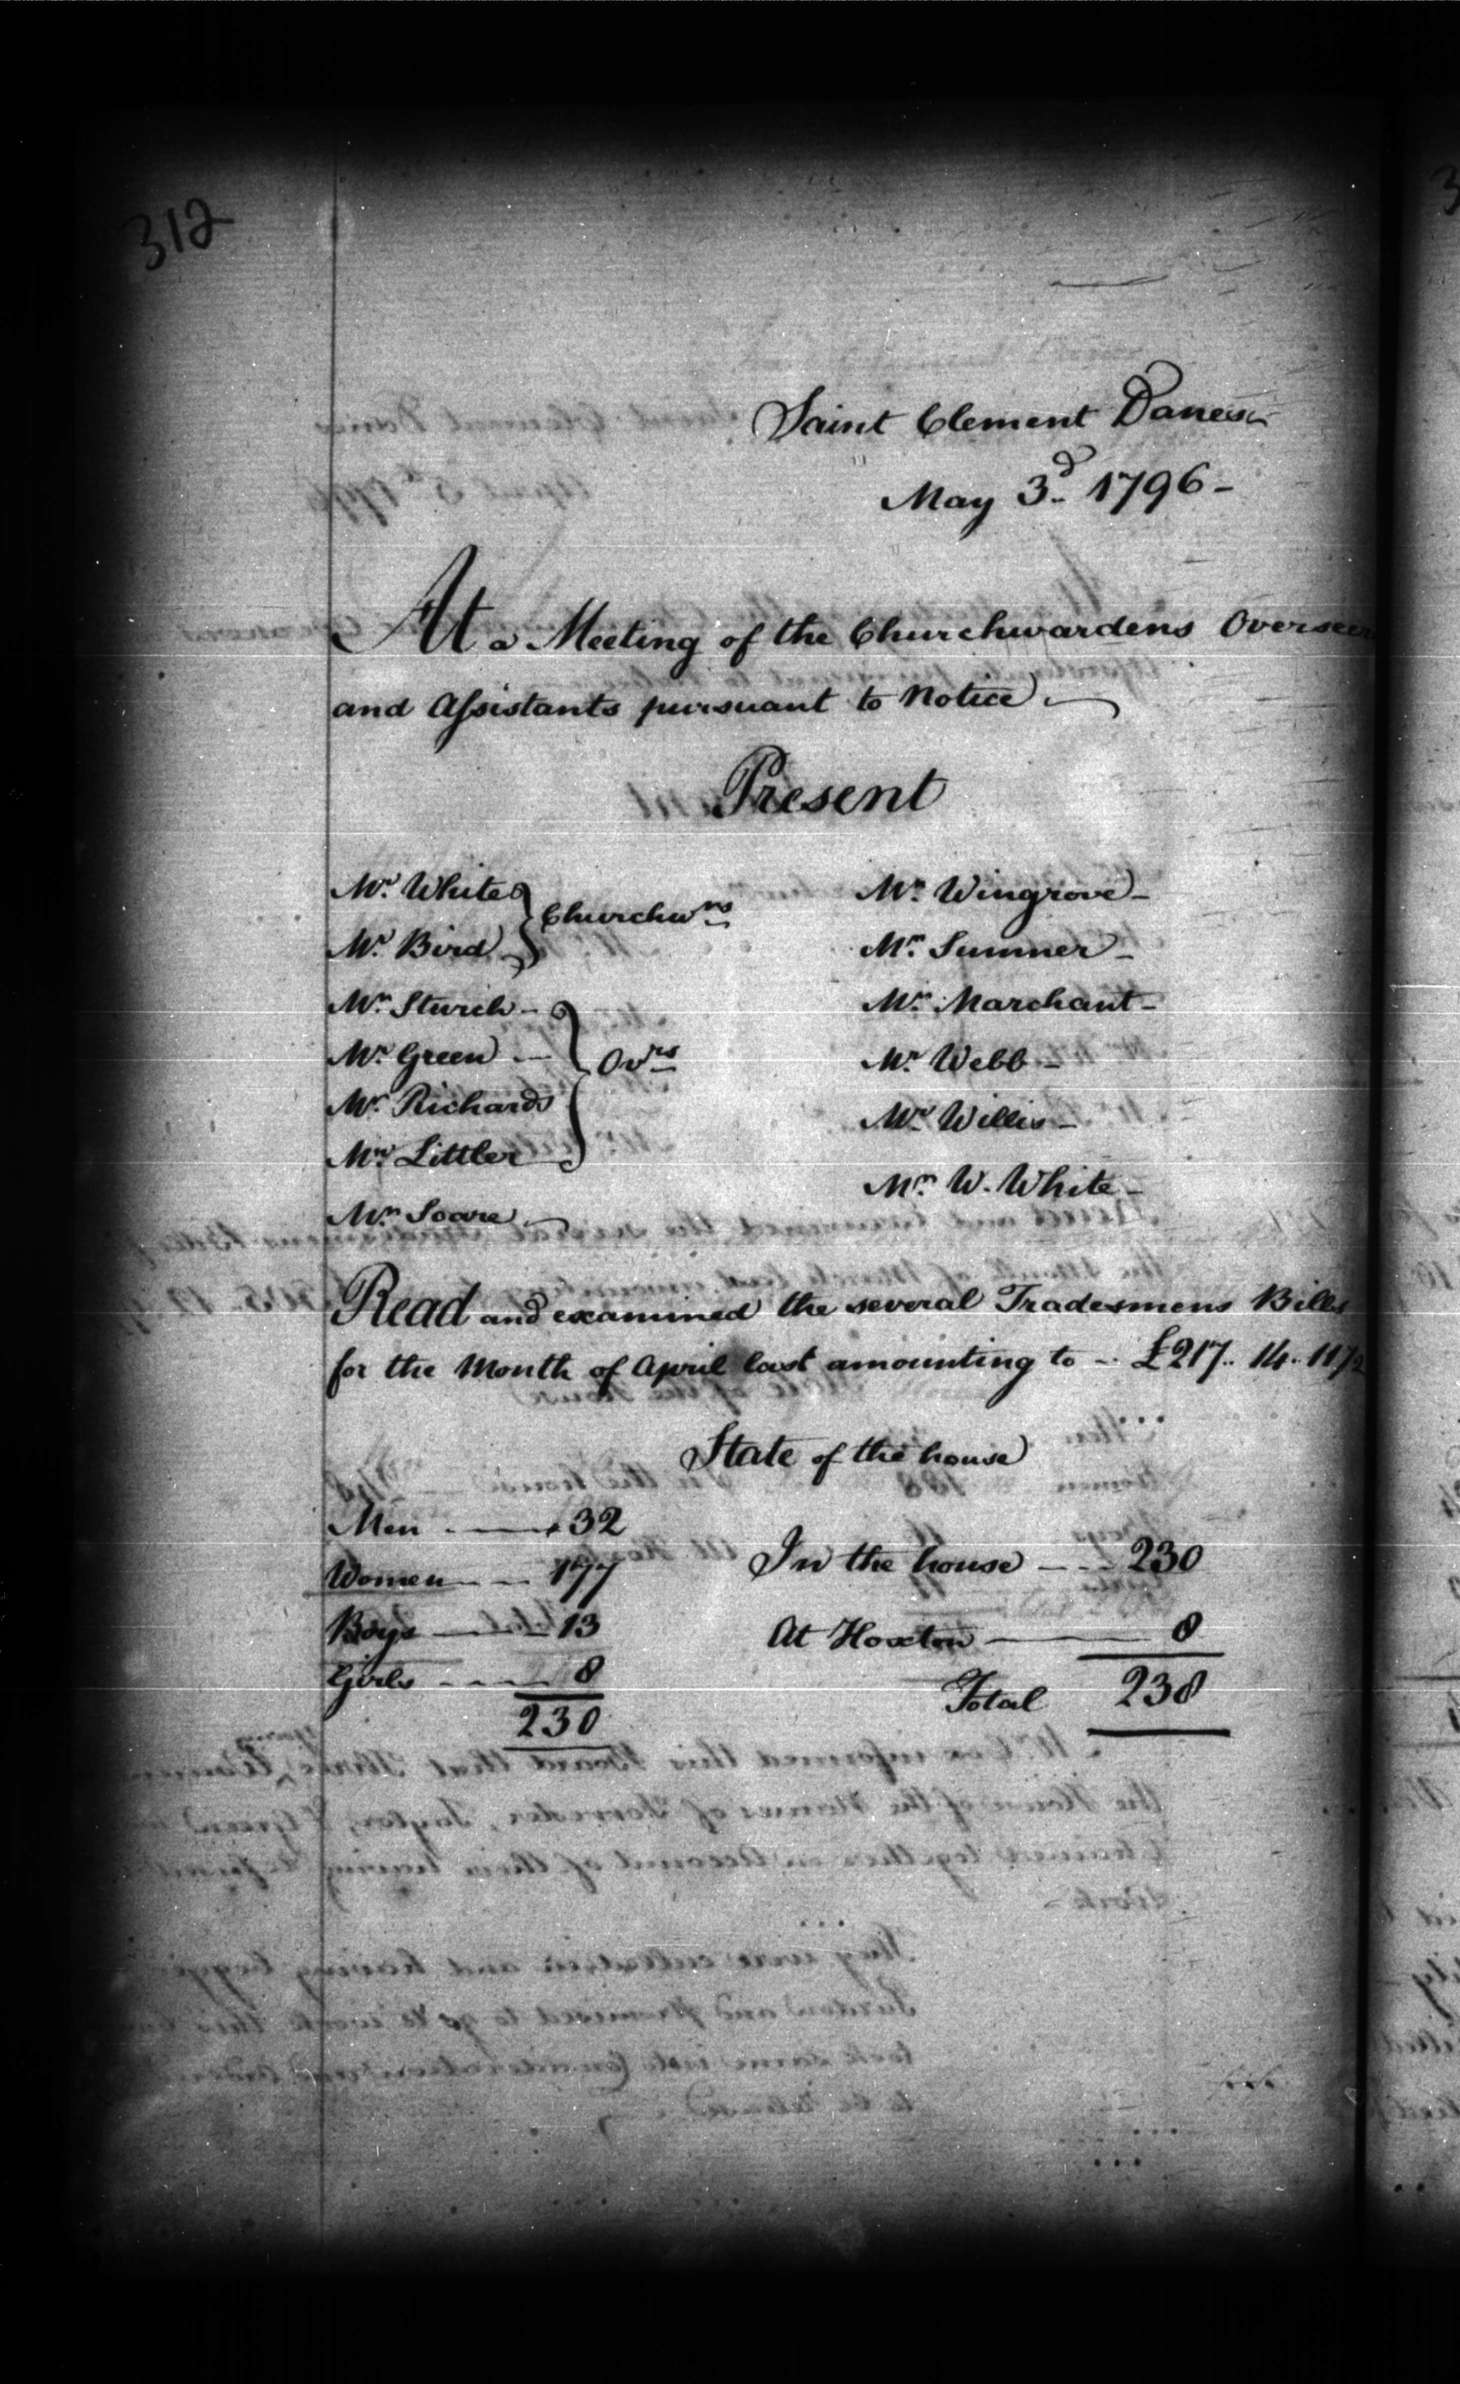 312
Saint Clement Danes
May 3d. 1796 -
At a Meeting of the Churchwardens Overseers
and Assistants pursuant to Notice.
Present
Mr. White
Mr. Bird
Churchwrs
Mr. Sturch -
Mr. Green -
Mr. Richards
Mr. Littler
Ovrs
Mr. Soare
Mr. Wingrove -
Mr. Sumner -
Mr. Marchant -
Mr. Webb -
Mr. Willis -
Mr. W. White -
Read and examined the several Tradesmens Bills
for the Month of April last amounting to - £217.. 14.. 11 1/2
State of the house
Men - 32
Women - 177
Boys - 13
Girls - 8
230
In the house - 230
At Hoxton - 8
Total 238